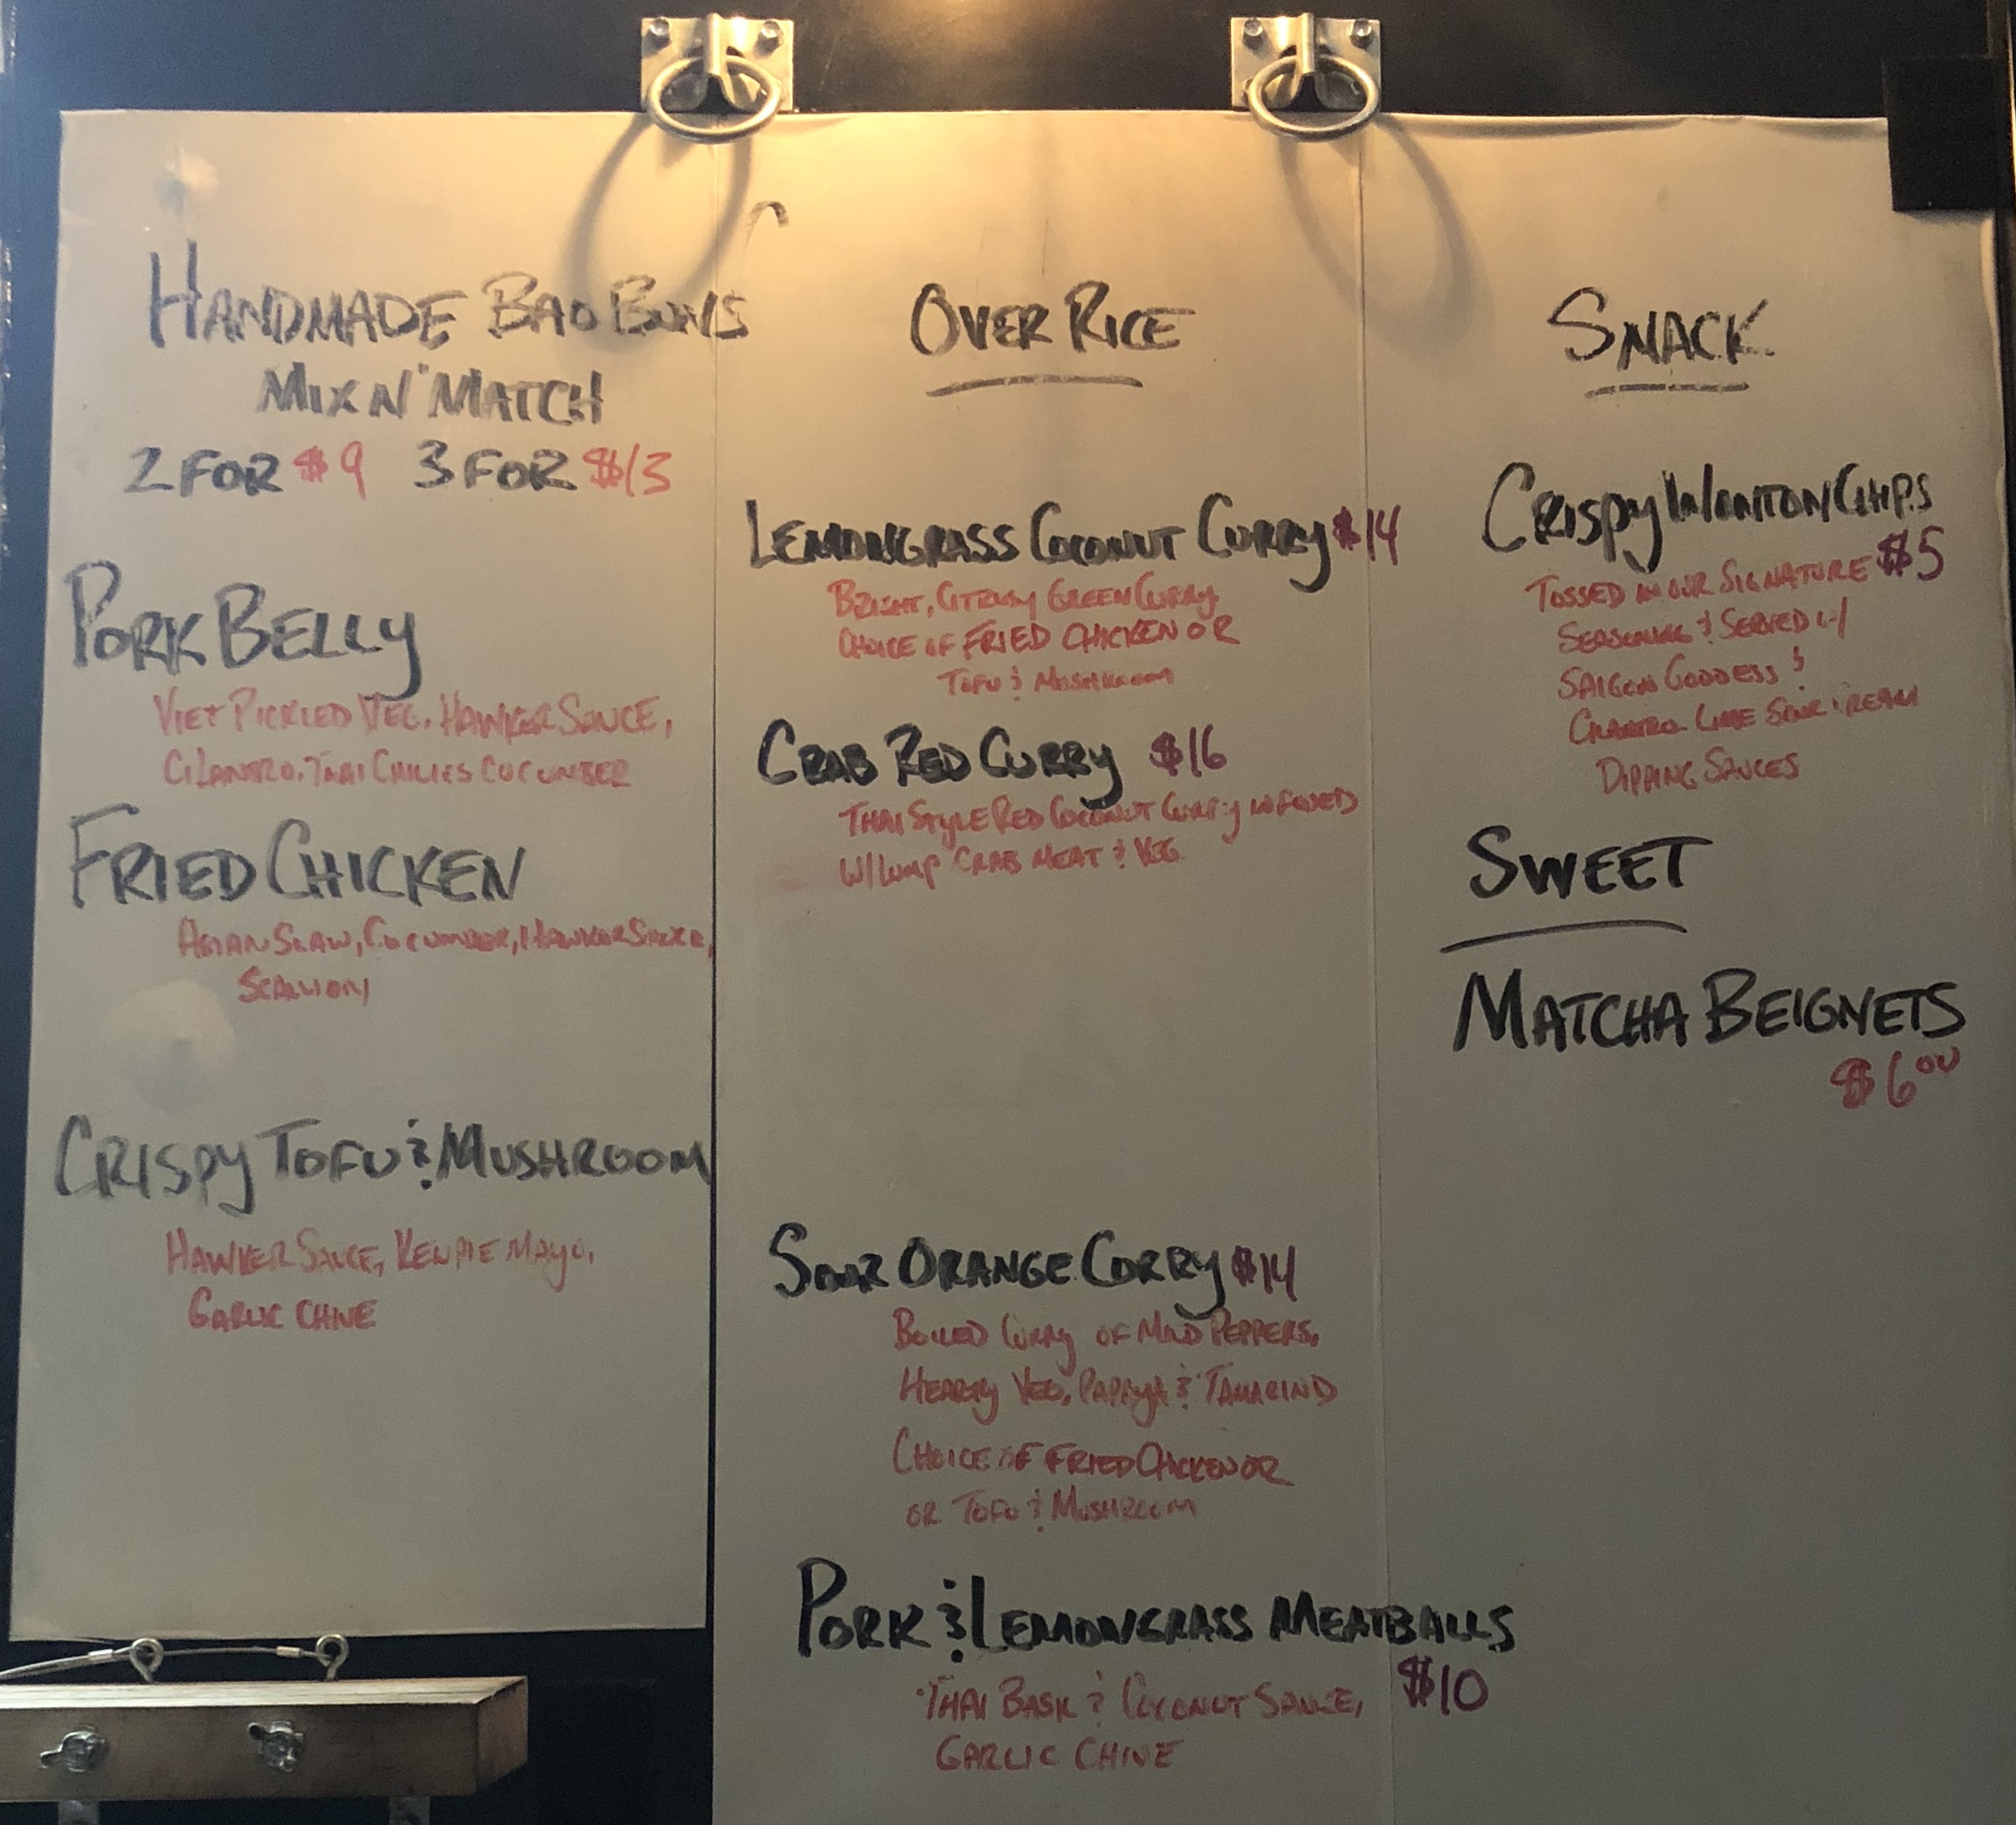 HANDMADE BAO BUNS
MIX N' MATCH
2 FOR $9 3 FOR $13
PORK BELLY
VIET PICKLED VEG, HAWKER SAUCE,
CILANTRO, THAI CHILIES CUCUMBER
FRIED CHICKEN
ASIAN SLAW, CUCUMBER, HAWKER SAUCE,
SCALLION
CRISPY TOFU & MUSHROOM
HAWKER SAUCE, KEWPIE MAYO,
GARLIC CHIVE
OVER RICE
LEMONGRASS COCONUT CURRY $14
BRIGHT, CITRUSY GREEN CURRY
CHOICE OF FRIED CHICKEN OR
TOFU & MUSHROOM
CRAB RED CURRY $16
THAI STYLE RED COCONUT CURRY INFUSED
W/ LUMP CRAB MEAT & VEG
SOUR ORANGE CURRY $14
BOILED CURRY OF MILD PEPPERS,
HEARTY VEG, PAPAYA & TAMARIND
CHOICE OF FRIED CHICKEN OR
OR TOFU & MUSHROOM
PORK & LEMONGRASS MEATBALLS
$10
THAI BASIL & COCONUT SAUCE,
GARLIC CHIVE
SNACK
CRISPY WONTON CHIPS
$5
TOSSED IN OUR SIGNATURE
SEASONING & SERVED W/
SAIGON GODDESS &
CILANTRO LIME SOUR CREAM
DIPPING SAUCES
SWEET
MATCHA BEIGNETS
$6.00